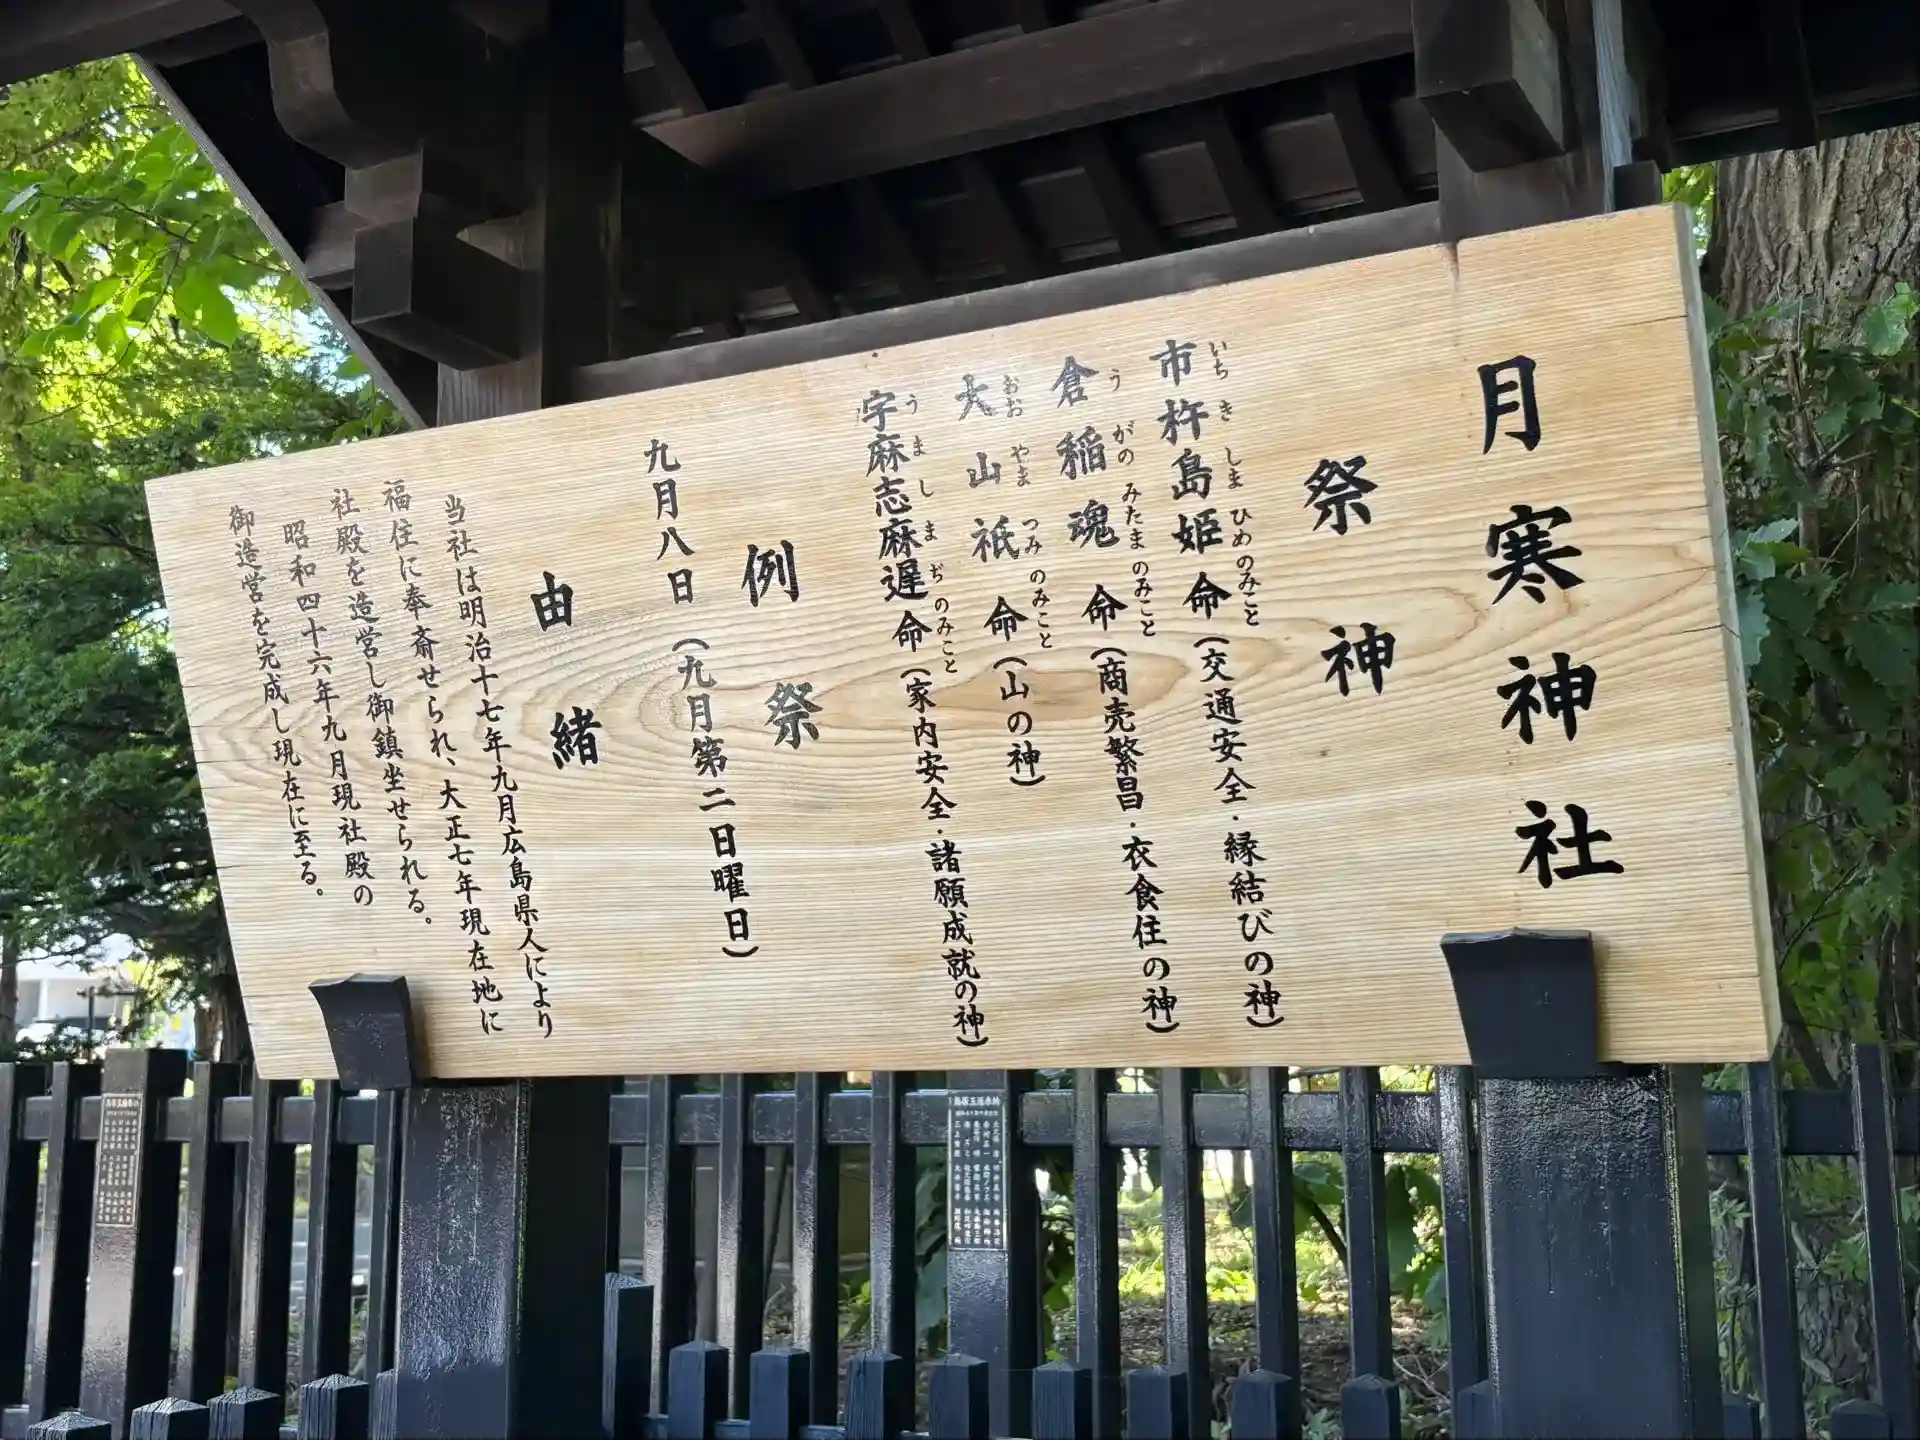 月寒神社
祭神
市杵島姫命(交通安全・縁結びの神)
いちきしまひめのみこと
倉稲魂命(商売繁昌・衣食住の神)
うがのみたまのみこと
大山祇命(山の神)
おおやまつみのみこと
宇麻志麻遅命(家内安全・諸願成就の神)
うましまぢのみこと
例祭
九月八日(九月第二日曜日)
由緒
当社は明治十七年九月広島県人により
福住に奉斎せられ、大正七年現在地に
社殿を造営し御鎮坐せられる。
昭和四十六年九月現社殿の
御造営を完成し現在に至る。